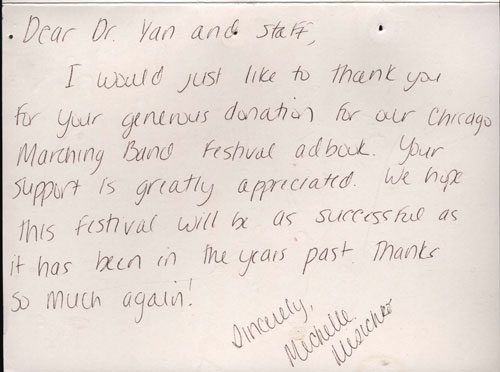 Dear Dr. Yan and staff,
I would just like to thank you
for your generous donation for our Chicago
Marching Band Festival adbook. Your
support is greatly appreciated. We hope
this festival will be as successful as
it has been in the years past. Thanks
so much again!
Sincerely,
Michelle